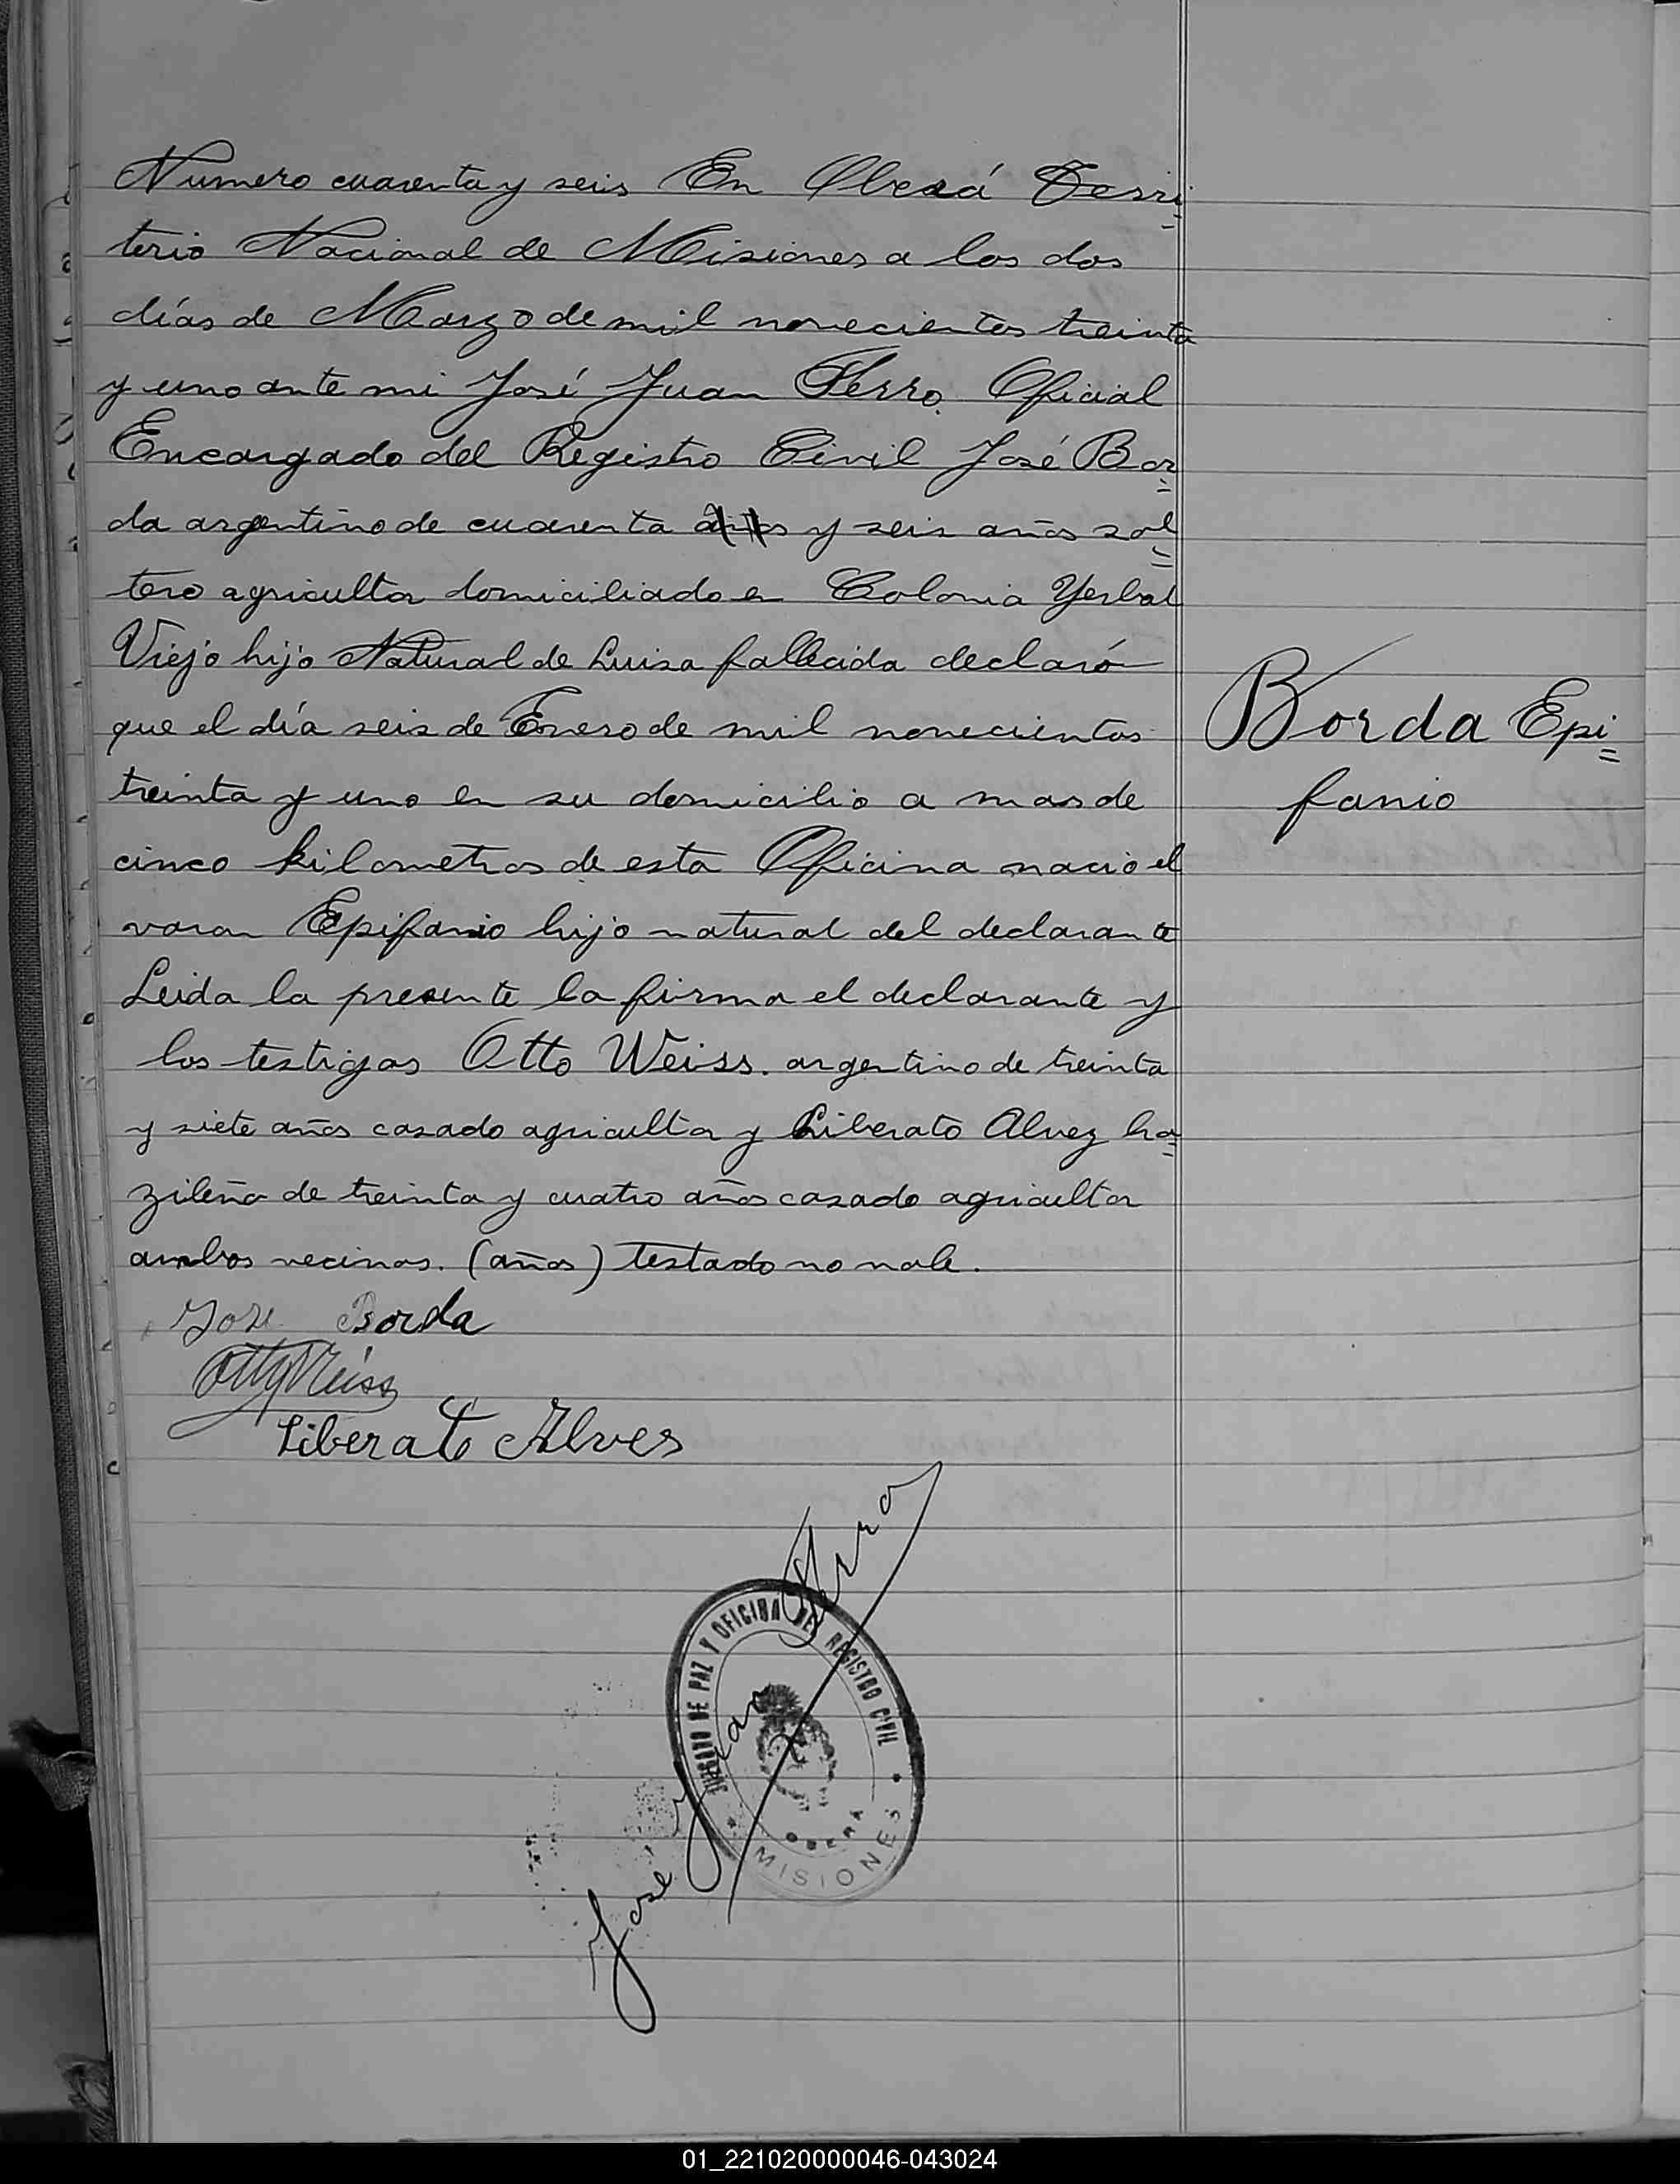 Numero cuarenta y seis En Oberá Terri=
torio Nacional de Misiones a los dos
días de Marzo de mil novecientos treinta
y uno ante mi José Juan Ferro. Oficial
Encargado del Registro Civil José Bor=
da argentino de cuarenta años y seis años sol=
tero agricultor domiciliado en Colonia Yerbal
Viejo hijo Natural de Luisa fallecida declaró
que el día seis de Enero de mil novecientos
treinta y uno en su domicilio a mas de
cinco kilometros de esta Oficina nacio el
varon Epifanio hijo natural del declarante
Leida la presente la firma el declarante y
los testigos Otto Weiss. argentino de treinta
y siete años casado agricultor y Liberato Alvez bra=
zileño de treinta y cuatro años casado agricultor
ambos vecinos. (años) testado no vale.
Borda Epi=
fanio
Jose Borda
Otto Weiss
Liberato Alves
Jose Juan Ferro
JUZGADO DE PAZ Y OFICINA DEL REGISTRO CIVIL
OBERA
MISIONES
01_221020000046-043024